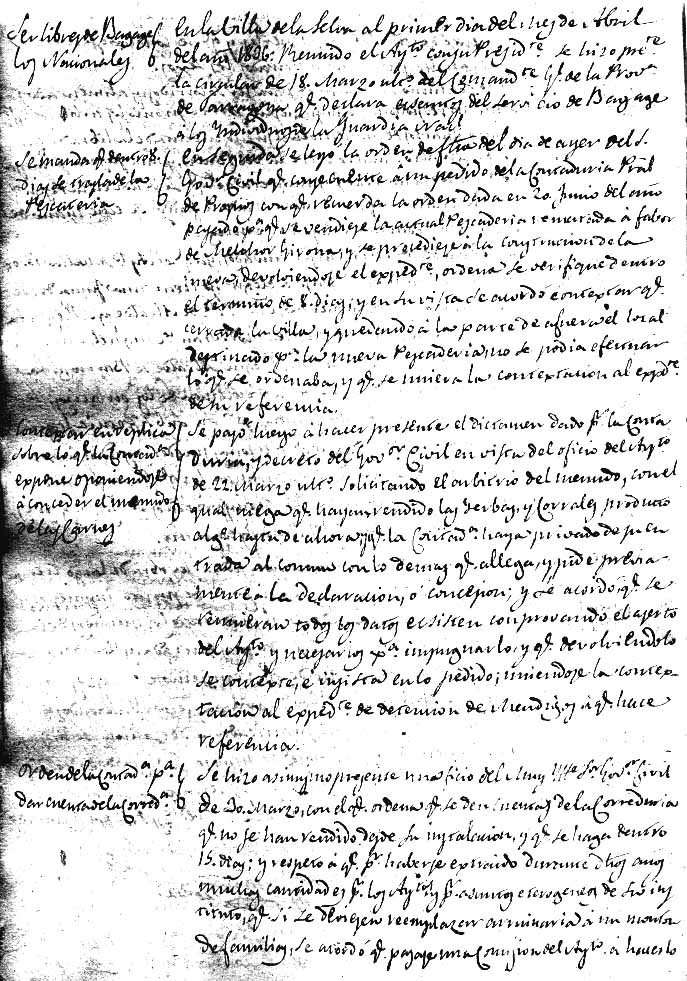 Ser libres de Bagages
los Nacionales
En la Villa de la Selva al primer dia del Mes de Abril
del año 1836. Reunido el Aytº con su Presidte se hizo prete
la circular de 18. Marzo ultº del Comandte Gl de la Prova
de Tarragona qe declara esentos del servicio de Bagage
á los Individuos de la Guardia Nal
Se manda qe dentro 8.
dias se traslade la
Pescateria
En seguida se leyo la orden de fha del dia de ayer del S.
Gobr Civil qe consecuente á un pedido de la Contaduria Pral
de Propios con qe recuerda la orden dada en 20 Junio del año
pasado pa qe se vendiese la actual Pescaderia rematada á fabor
de Melchor Girona, y se procediese á la construccion de la
nueva, devolviendose el expedte, ordena se verifique dentro
el termino de 8. dias, y en su vista se acordó contextar qe
cerrada la Villa, y quedando á la parte de afuera el local
destinado pa la nueva Pescaderia, no se podia efectuar
lo qe se ordenaba, y qe se uniera la contextacion al expdte
de su referencia.
Contextar en replica
sobre lo qe la Contada
expone oponiendose
á conceder el menudo
de las Carnes
Se pasó luego á hacer presente el dictamen dado pr la Conta
duria, y Decreto del Gobor Civil en vista del oficio del Aytº
de 22. Marzo ultº solicitando el arbitrio del menudo, con el
qual niega qe hayan rendido las Yerbas, y Corrales producto
algº hasta de ahora, y qe la Contada haya privado de su en
trada al comun con lo demas qe allega, y pide previa-
mente á la declaracion, ó concesion; y se acordó, qe se
reunieran todos los datos ecsisten comprovando el aserto
del Aytº y necesarios pa impugnarlo, y qe devolviendolo
se contexte, e insista en lo pedido; uniendose la contex-
tacion al expedte de detencion de Mendigos á qe hace
referencia.
Orden de la Contada pa
dar cuenta de la Correda
Se hizo asimismo presente un oficio del Muy Iltre Sor Gobor Civil
de 30. Marzo, con el qe ordena qe se den cuentas de la Correduria
qe no se han rendido desde su instalacion, y qe se haga dentro
15. dias; y respeto á qe pr haberse extraido durante dhos años
muchas cantidades pr los Aytos y pr asuntos eterogeneos de su ins
tituto, qe si se deviesen reemplazar arruinaria á un monton
de familias, se acordó qe pasase una Comision del Aytº á hacerlo